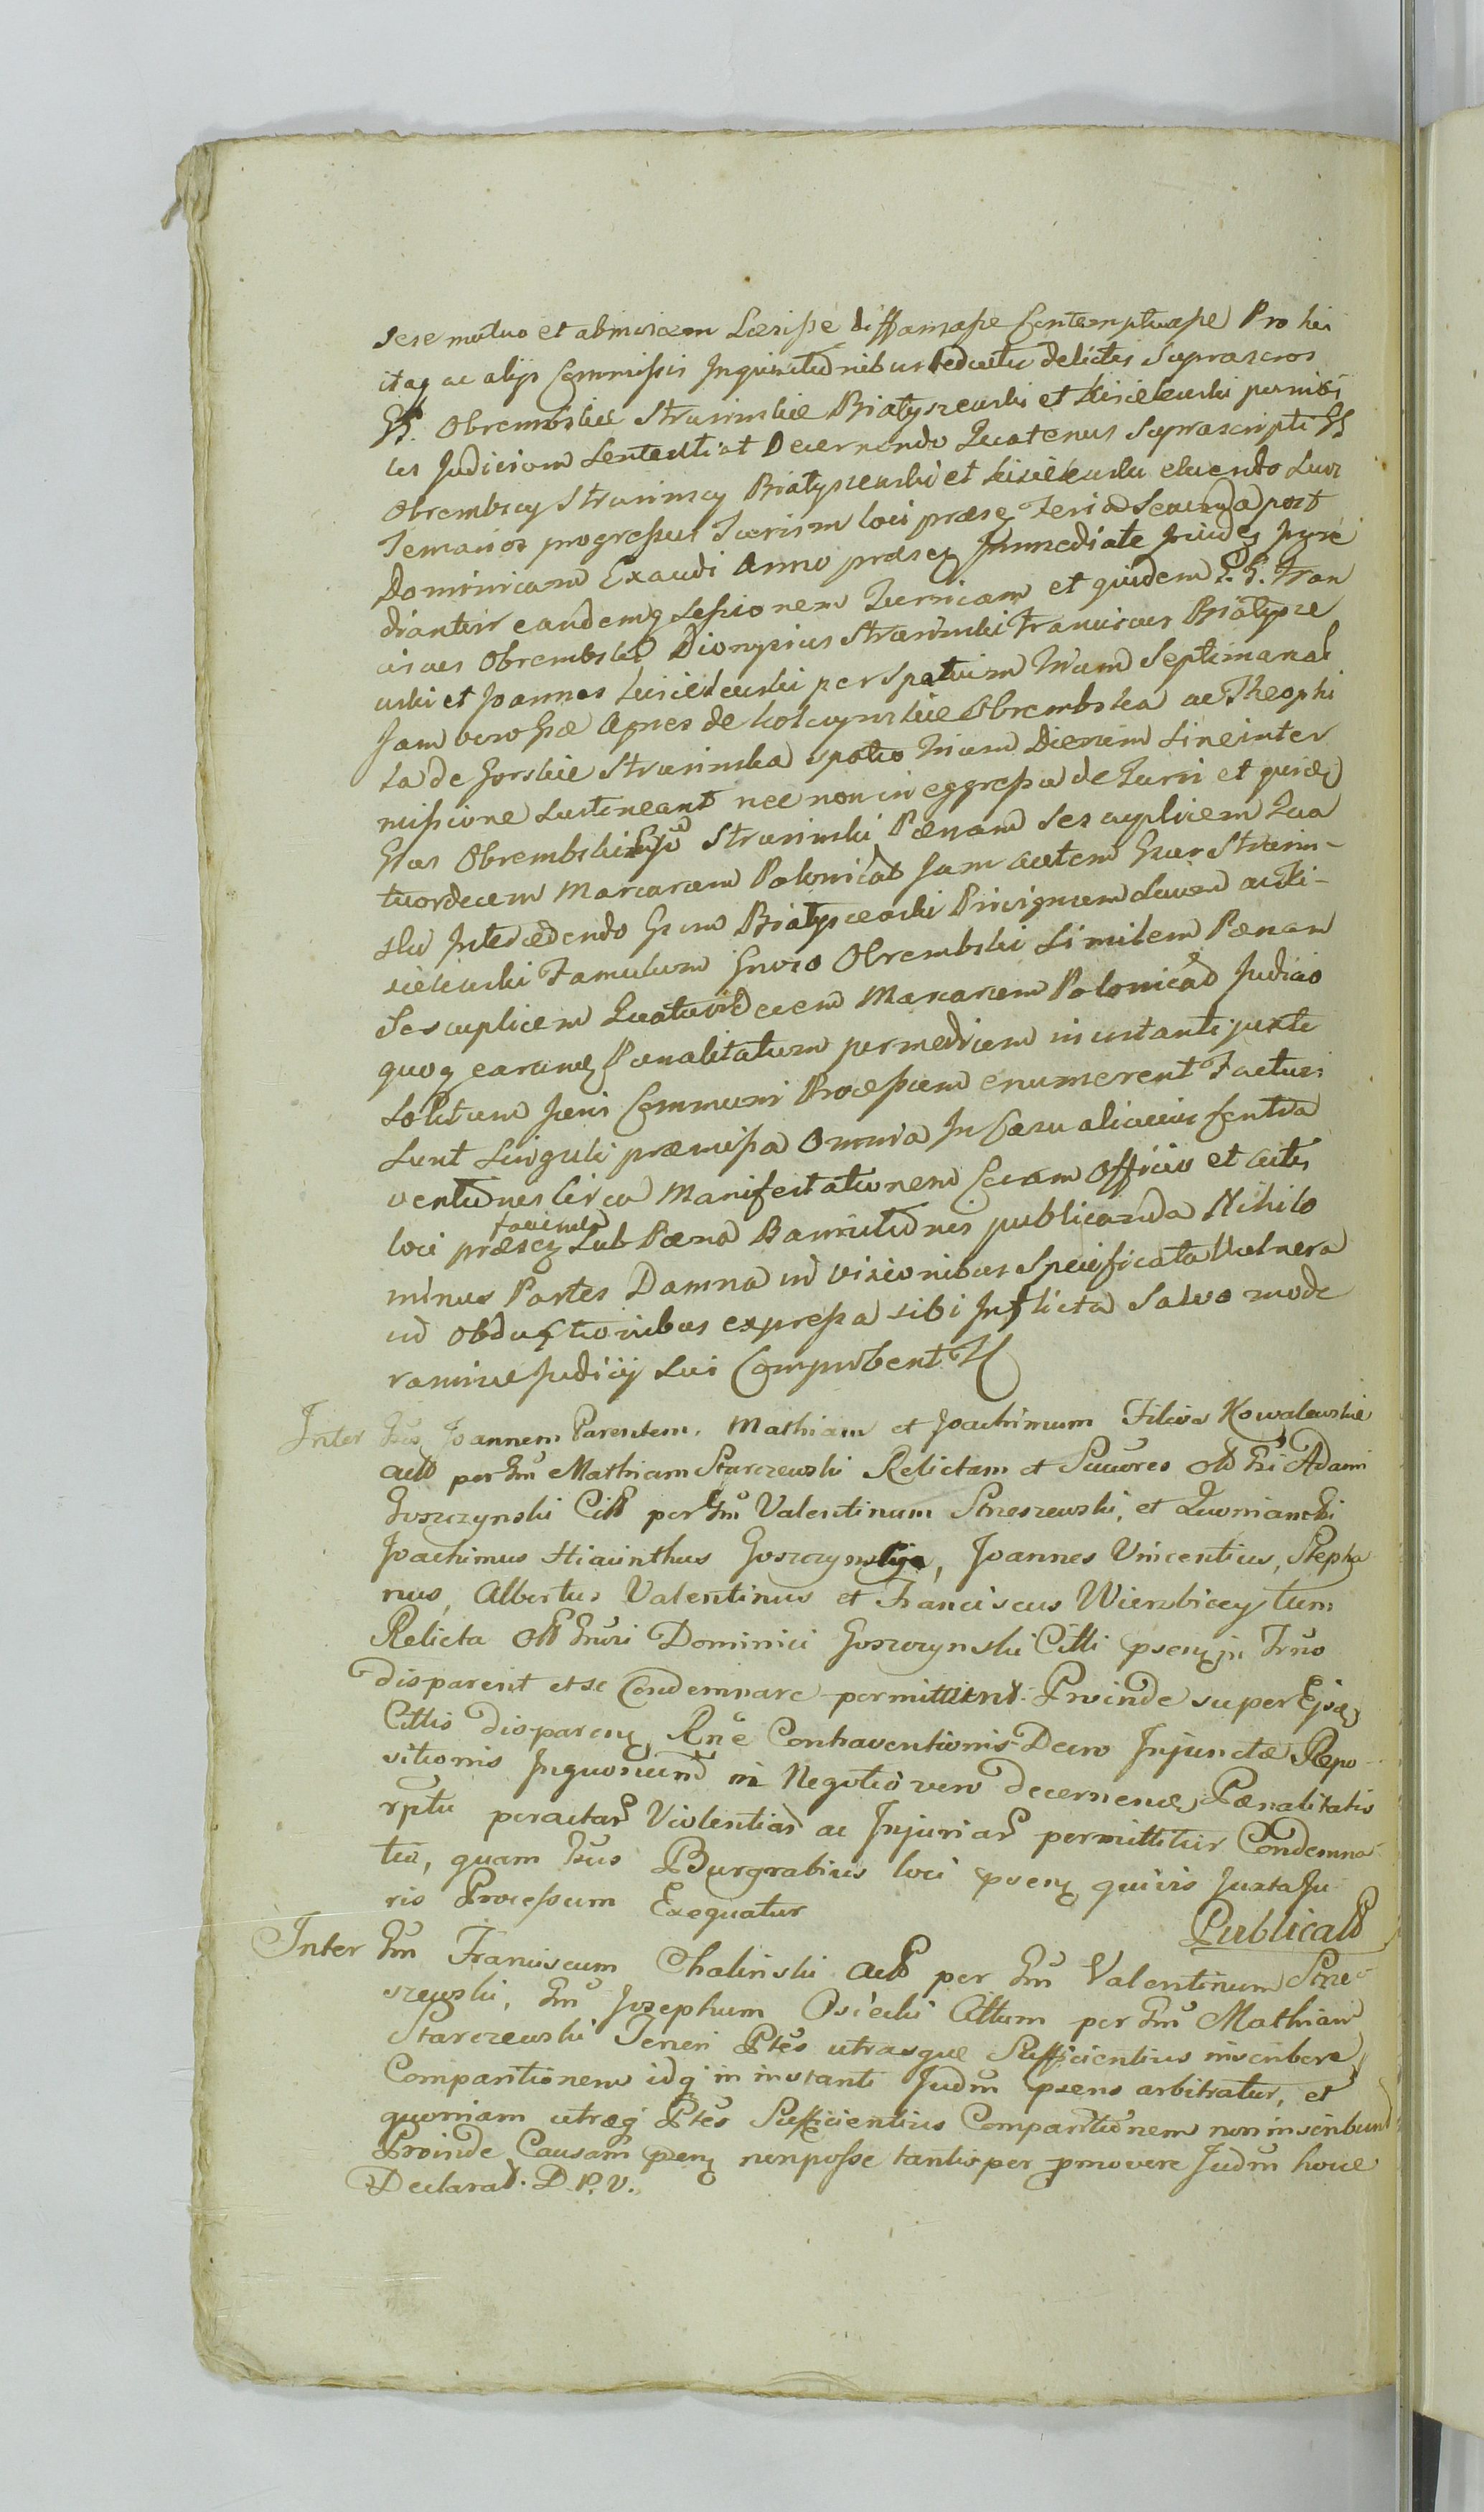 sese mutuo et abinvicem Læsisse diffamasse Contemptuasse Pro his
itaq ac alijs Commissis Inquisitionibus deductis delictis Suprascros
GG. Obrembskie Strusinskie Białyszewski et Kisielewski punien
us Judicium Sententiat Decernendo Quatenus Suprascripti GG
Obrembscy Strusinscy Białyszewski et Kisielewski eluendo Suos
Temarios progressus Turrim loci præsq Feria Secunda post
Dominicam Exaudi Anno præsq Immediate
diantur eandemq Sessionem Turricam et quidem G. G. Fran
ciscus Obrembski Dionysius Strusinski Franciscus Białysze
wski et Joannes Kisielewski per Spatium Trium Septimanar
Jam vero Gsæ Agnes de Kolczynskie Obrembska ac Theophi
la de Gorskie Strusinska spatio Trium Dierum Sine inter
missione Sustineant nec non in eggressu de Turri et quidem
Gsus Obrembski Strusinski Pænam Sescuplicem Qua
tuordecem Marcarum Polonical Jam autem Gsus Strusin-
ski Intercedendo Gsum Białyszewski Privignum Suum ac Ki-
sielewski Famulum Gnoso Obrembski Similem Pænam
Sescuplicem Quatuordecem Marcarum Polonical Judicio
quoq earumq Pænalitatum permedium in instanti juxta
Solitum Juris Communi Processum enumerent Facturi
Sunt Singuli præmissa Omnia In Casu alicuius Contra
ventionis Circa Manifestationem Coram Officio et actis
loci præsq faciend Sub Pæna Bannitionis publicanda Nihilo
minus Partes Damna in visionibus Specificata Vulnera
in Obductionibus expressa sibi Inflicta Salvo mode
ramine Judicij Sui Comprobent
Inter Gsos Joannem Parentem, Mathiam et Joachimum Filios Kowalewskie
actt per Gm Mathiam Starczewski Relictam et Succres olt Gsi Adami
Goszczynski Citt per Gm Valentinum Streszewski, et Quoniam Gsi
Joachimus Hiacinthus Goszczynscy, Joannes Vincentius, Stepha
nus, Albertus Valentinus et Franciscus Wierzbiccy tum
Relicta olt Gnosi Dominici Goszczynski Citti psenq in Trno
disparent et se Condemnare permittunt. Proinde super Ejsq
Cittis disparenq, Rne Contraventionis Decro Injunctæ Repo-
sitionis Inquisitionu in Negotio vero decernenæ Pænalitatis
rptu peractar Violentiar ac Injuriar permittitur Condemna
tio, quam Gsus Burgrabius loci psenq quivis Juxta Ju
ris Processum Exequatur
Publicatt
Inter Gm Franciscum Chalinski actt per Gm Valentinum Stre-
szewski, Gm Josephum Osiecki Cittum per Gm Mathiam
Starczewski Teneri Ptes utrasque Sufficientius inscribere
Comparitionem idq in instanti Judm psens arbitratur, et
quoniam utræq Ptes Sufficientius Comparitionem non inscribunt
Proinde Causam psenq nonposse tantisper pmovere Judm hocce
Declarat. D. P. V.